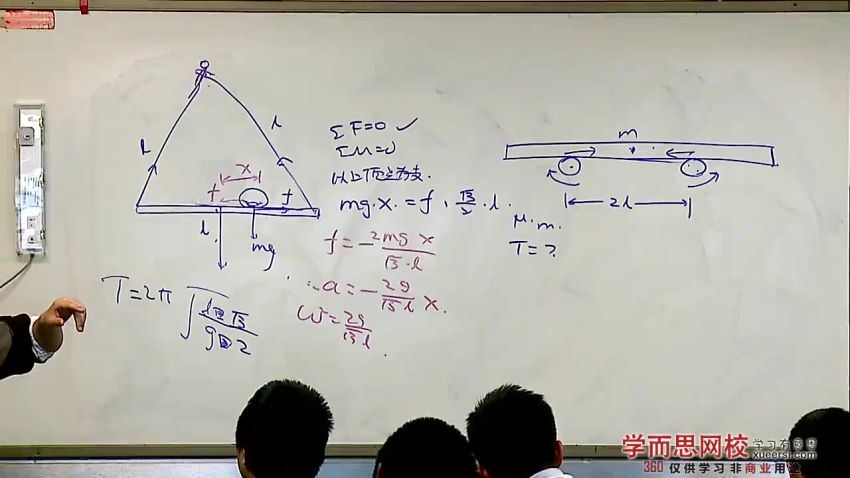 l
l
x
f
f
l.
mg
ΣF=0 ✓
ΣM=0
以上顶点为支.
mg·x.=f·√3/2·l.
f=-2mg x/√3·l
∴a=-2g/√3 l x.
ω=2g/√3 l
T=2π√l√3/g2
m
2l
μ.m.
T=?
学而思网校
学习有意思
xueersi.com
360 仅供学习 非商业用途